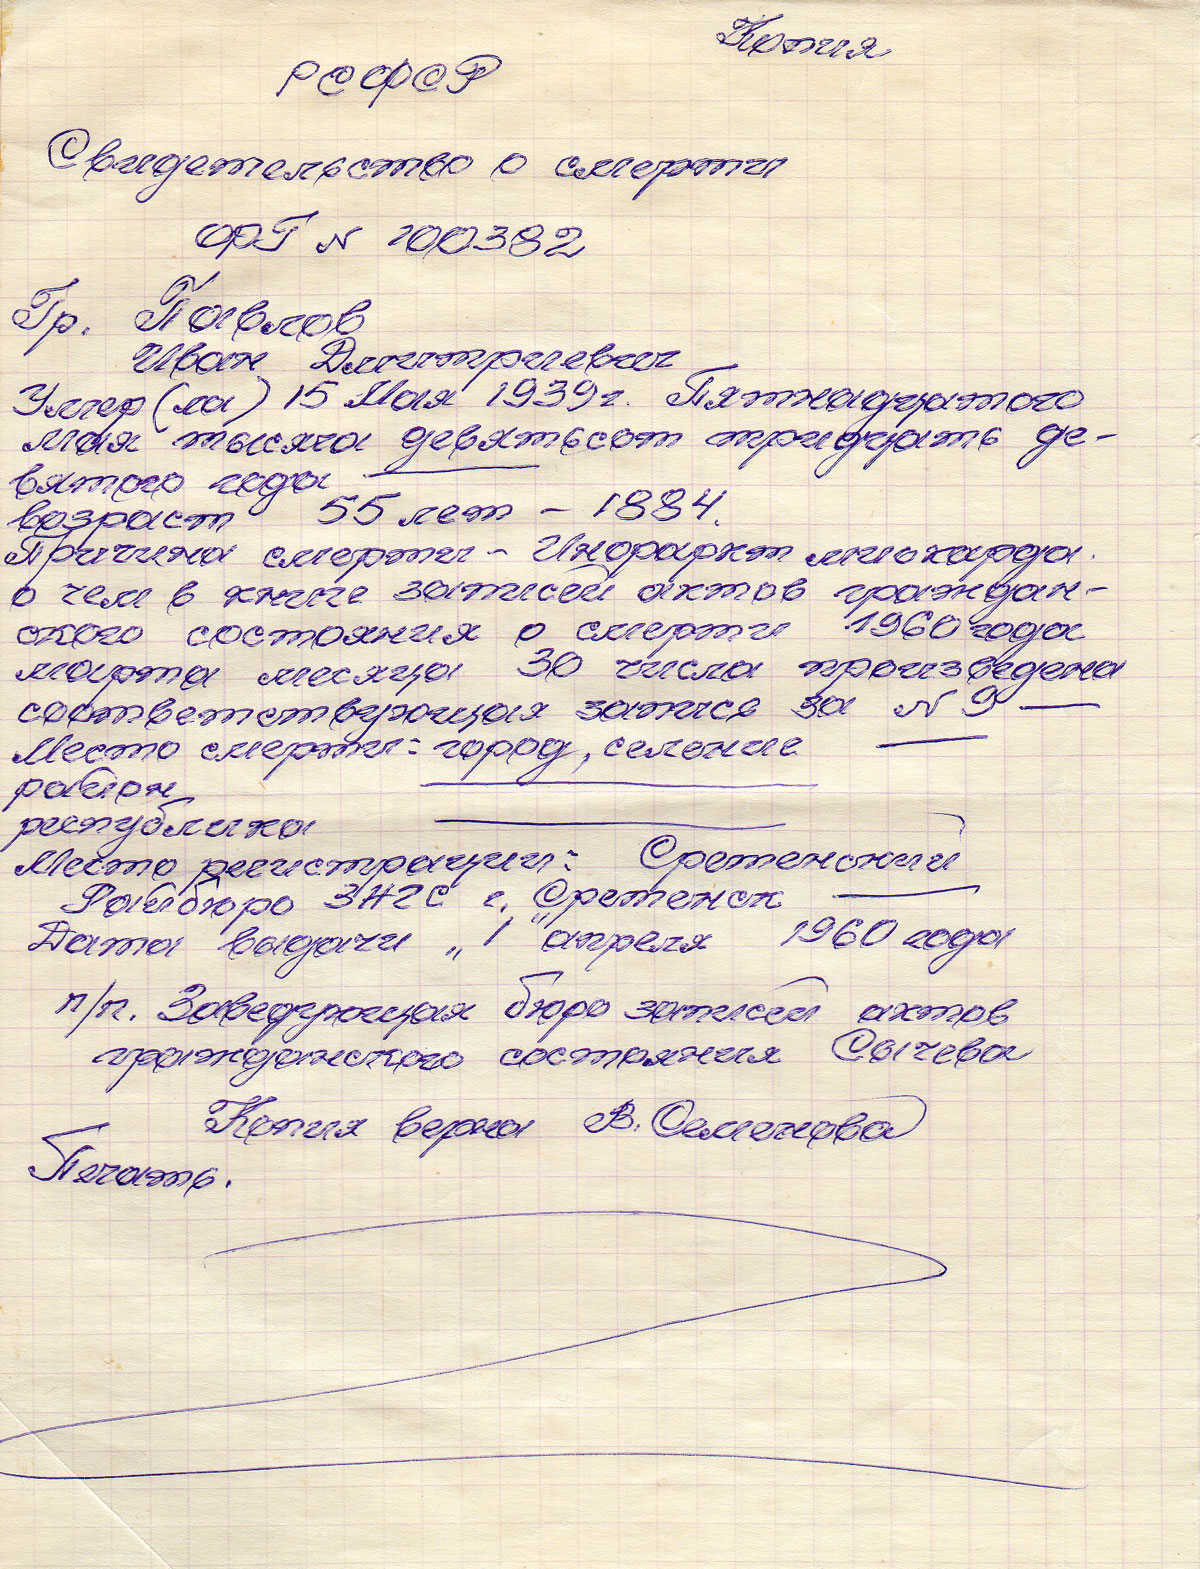 Копия
РСФСР
Свидетельство о смерти
ФРГ N 100382
Гр. Павлов
Иван Дмитриевич
Умер (ла) 15 Мая 1939 г. Пятнадцатого
мая тысяча девятьсот тридцать де-
вятого года
возраст 55 лет - 1884.
Причина смерти - Инфаркт миокарда.
о чем в книге записей актов граждан-
ского состояния о смерти 1960 года
марта месяца 30 числа произведена
соответствующая запись за N 9 —
Место смерти: город, селение —
район —
республика —
Место регистрации: Сретенский
Райбюро ЗАГС г. Сретенск —
Дата выдачи „1" апреля 1960 года
п/п. Заведующая бюро записей актов
гражданского состояния Сычева
Копия верна В. Семенова
Печать.